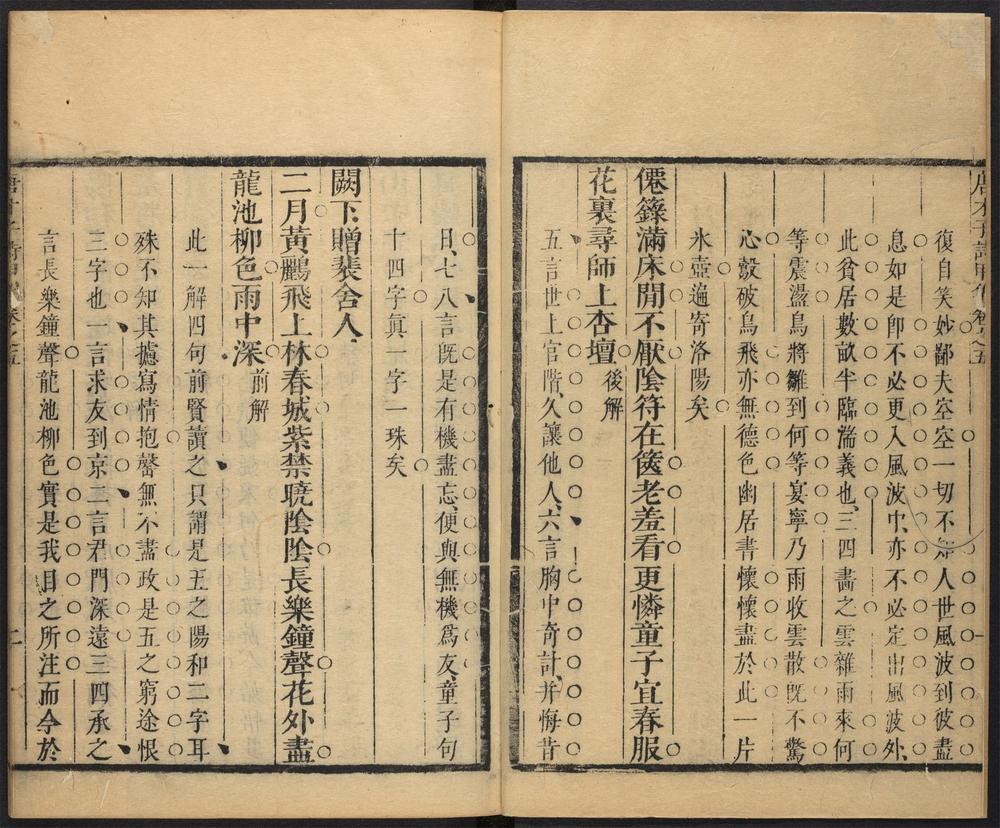 復自笑妙鄙夫空空一切不知人世風波到彼盡
息如是卽不必更入風波中亦不必定出風波外
此貧居數畝半臨湍義也三四畵之雲雜雨來何
等震盪鳥將雛到何等宴寧乃雨收雲散旣不驚
心㲉破鳥飛亦無德色幽居書懷懷盡於此一片
氷壺遍寄洛陽矣
僊籙滿床閒不厭陰符在篋老羞看更憐童子宜春服
花裏尋師上杏壇後解
五言世上官階久讓他人六言胸中奇計并悔昔
日七八言旣是有機盡忘便與無機爲友童子句
十四字眞一字一珠矣
闕下贈裴舍人
二月黃鸝飛上林春城紫禁曉陰陰長樂鐘聲花外盡
龍池柳色雨中深前解
此一解四句前賢讀之只謂是五之陽和二字耳
殊不知其攄寫情抱罄無不盡政是五之窮途恨
三字也一言求友到京二言君門深遠三四承之
言長樂鐘聲龍池柳色實是我目之所注而今於
二